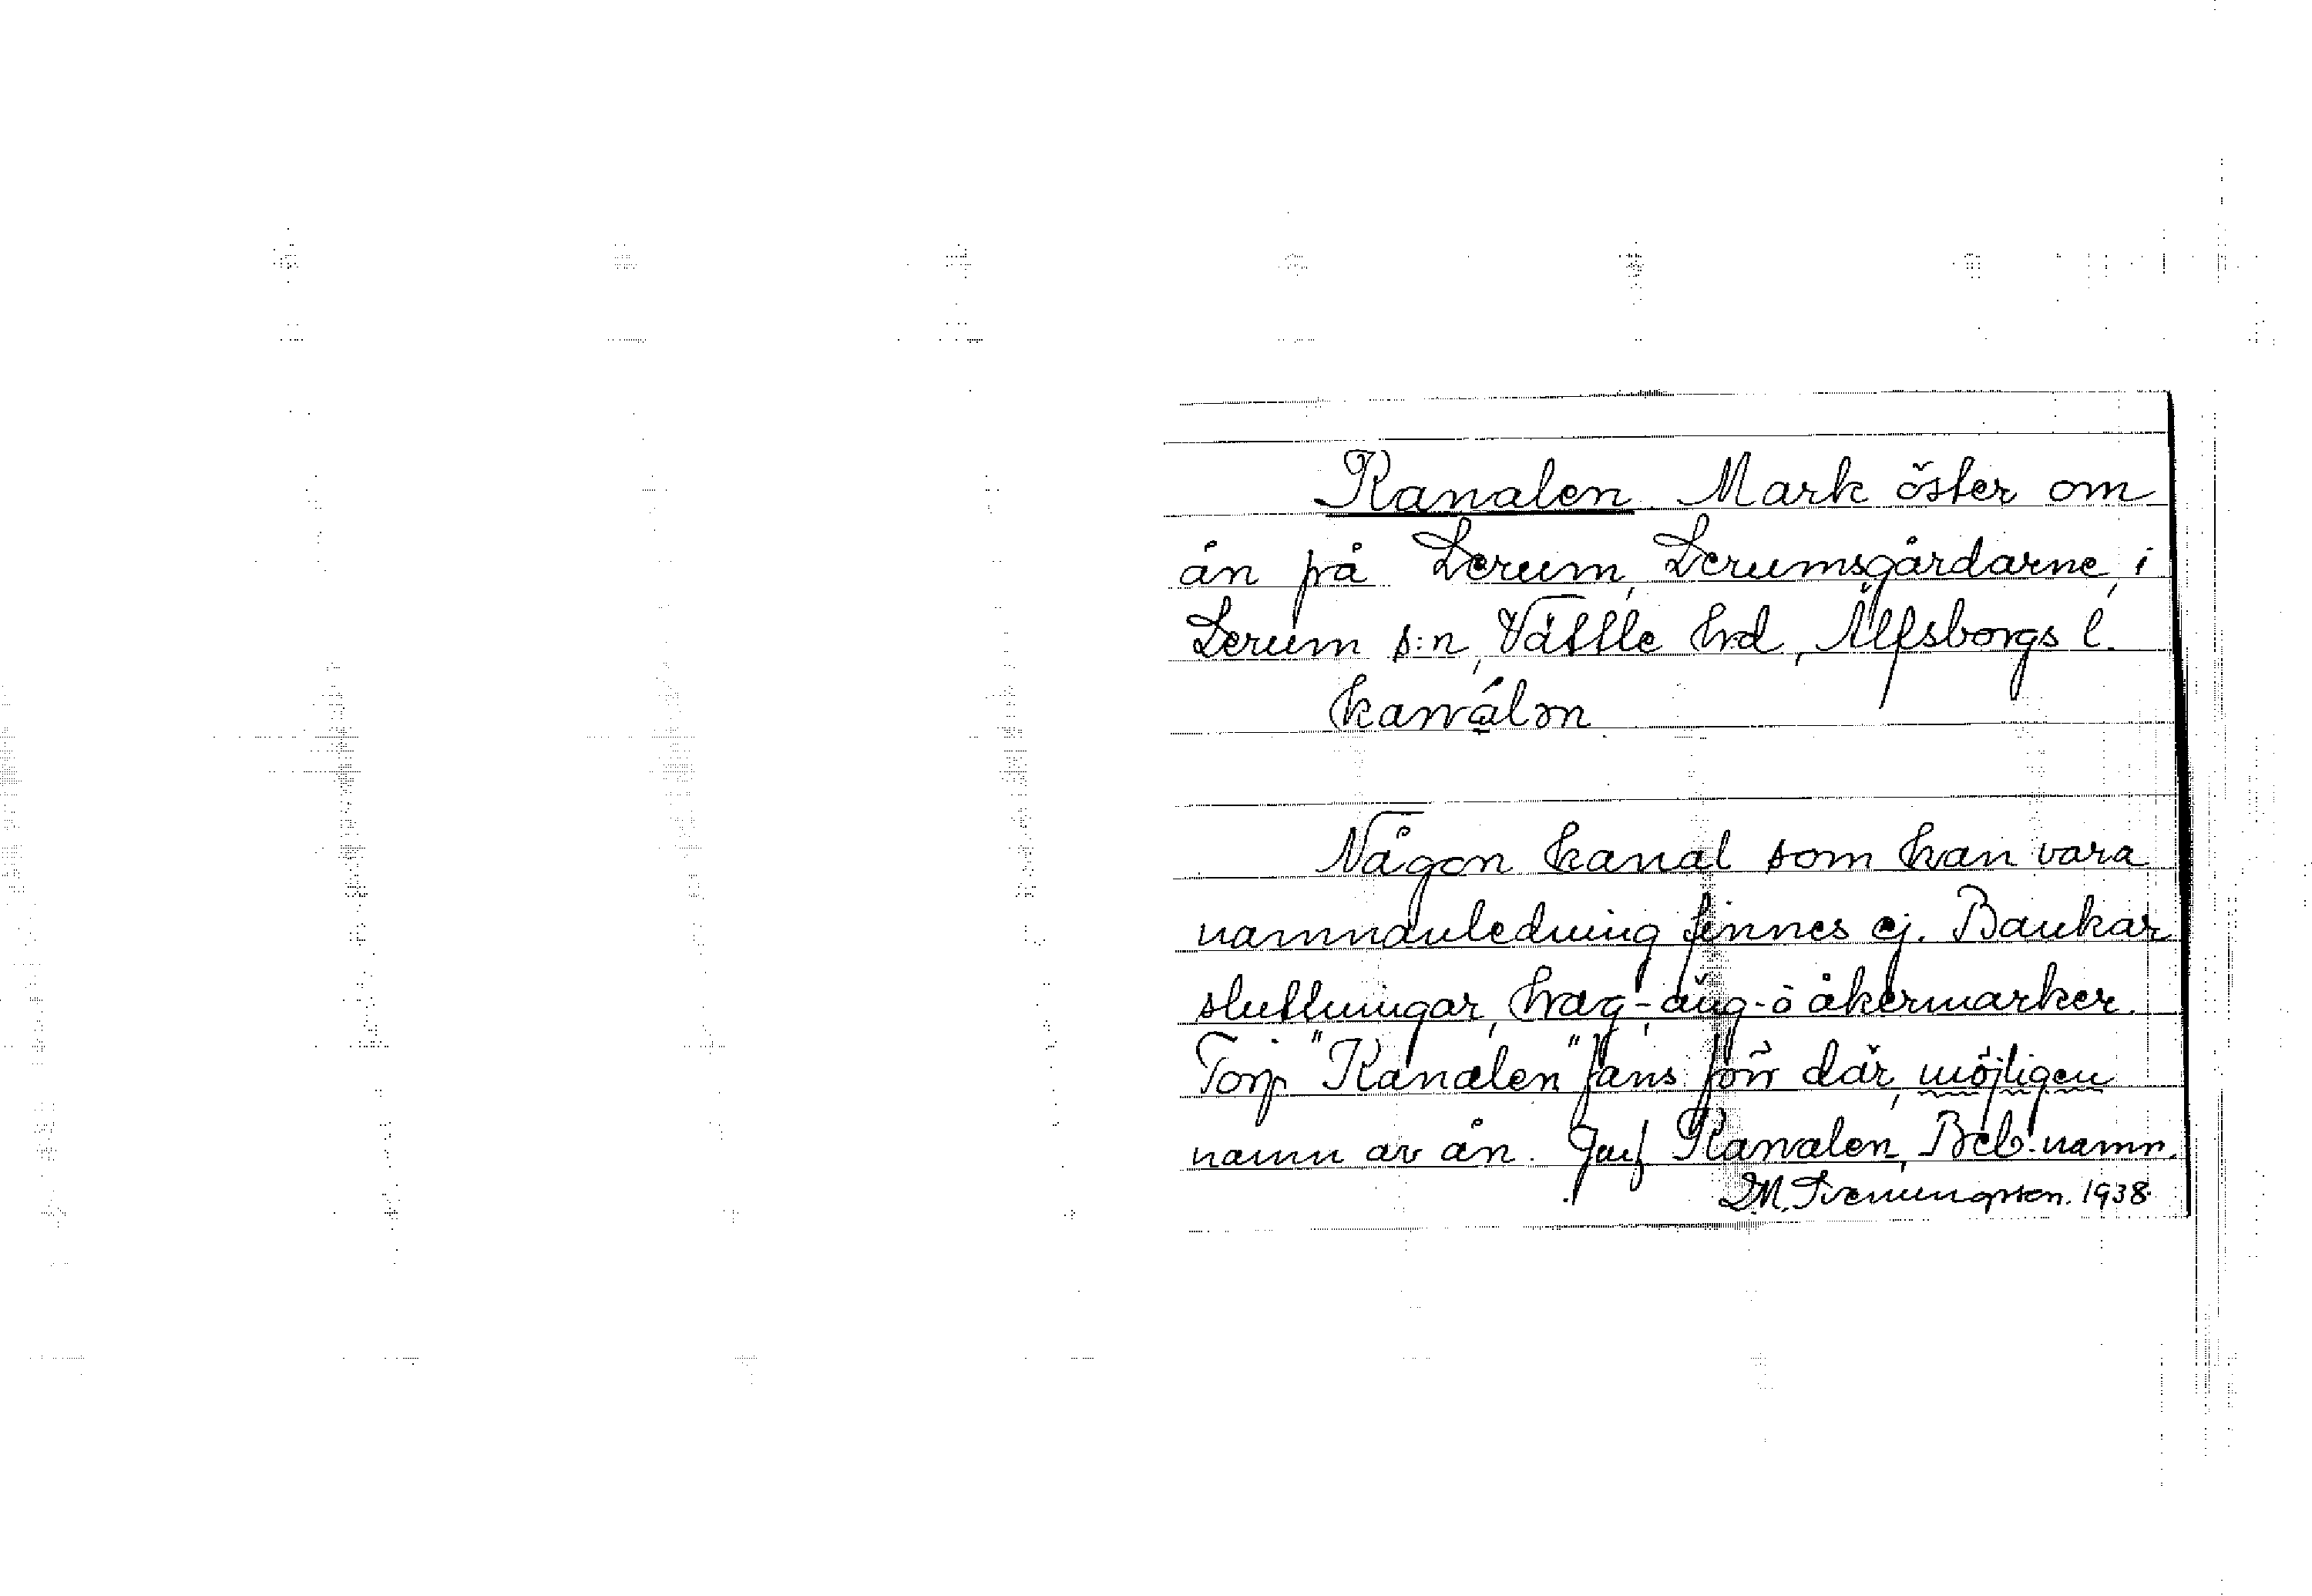 Kanalen. Mark öster om
ån på Lerum, Lerumsgårdarne, i
Lerum s:n, Vättle hrd, Älfsborgs l.
kanálen
Någon kanal som kan vara
namnanledning finnes ej. Backar
sluttningar, hag-, äng- o åkermarker.
Torp "Kanalen" fans förr där, möjligen
namn av ån. Jmf Kanalen, Beb. namn.
D.M. Svenungsson. 1938.